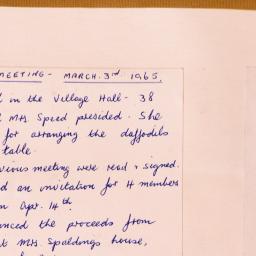 MEETING - MARCH. 3rd 1965.
in the Village Hall - 38
Mrs. Speed presided. She
for arranging the daffodils
table.
vious meeting were read & signed.
an invitation for 4 members
Apr. 14th.
nced the proceeds from
Mrs. Spaldings house,